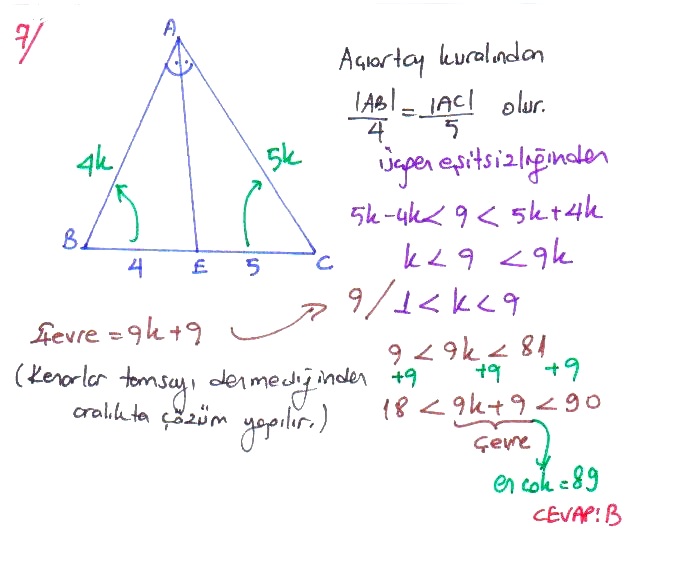 7/
A
4k
5k
B
4
E
5
C
Açıortay kuralından
|AB|/4 = |AC|/5 olur.
Üçgen eşitsizliğinden
5k-4k < 9 < 5k+4k
k < 9 < 9k
9/ 1 < k < 9
Çevre = 9k+9
(Kenarlar tamsayı dermediğinden
aralıkta çözüm yapılır.)
9 < 9k < 81
+9 +9 +9
18 < 9k+9 < 90
Çevre
en çok = 89
CEVAP: B